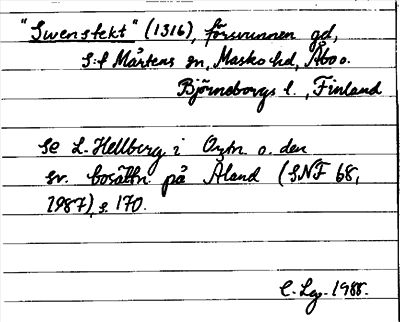 "Swenstekt" (1316), försvunnen gd,
S:t Mårtens sn, Masko hd, Åbo o.
Björneborgs l., Finland
Se L. Hellberg i Ortn. o. den
sv. bosättn. på Åland (SNF 68,
1987), s. 170.
1988.